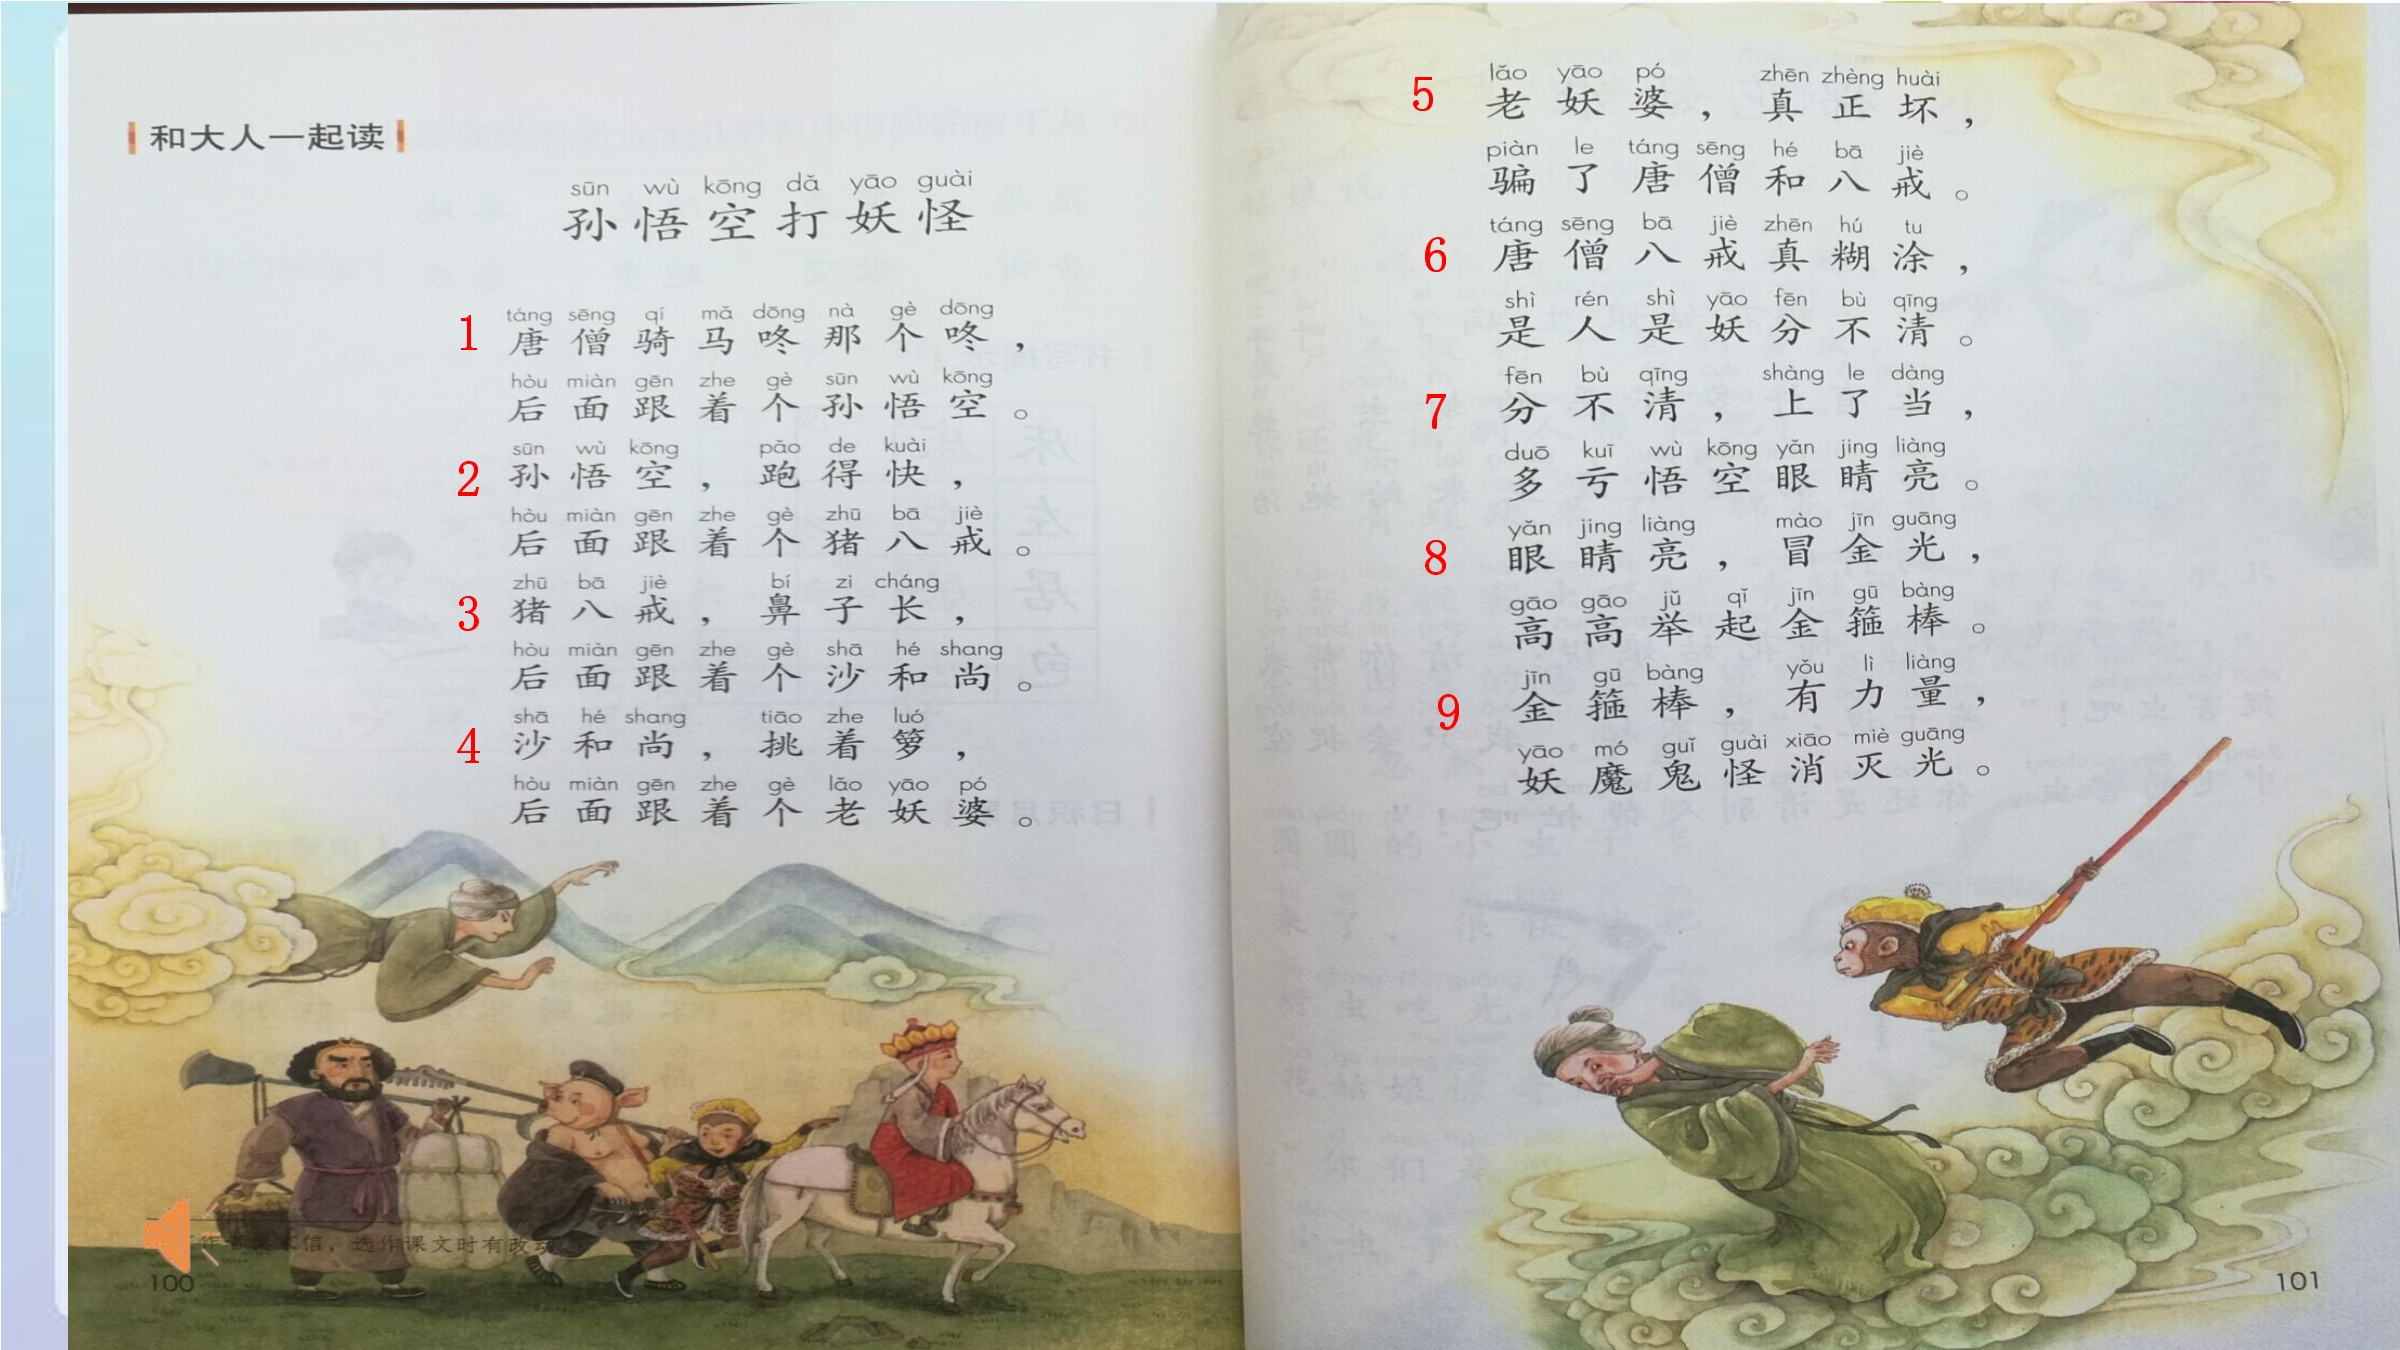 和大人一起读
sūn wù kōng dǎ yāo guài
孙悟空打妖怪
1
táng sēng qí mǎ dōng nà gè dōng
唐僧骑马咚那个咚，
hòu miàn gēn zhe gè sūn wù kōng
后面跟着个孙悟空。
2
sūn wù kōng pǎo de kuài
孙悟空，跑得快，
hòu miàn gēn zhe gè zhū bā jiè
后面跟着个猪八戒。
3
zhū bā jiè bí zi cháng
猪八戒，鼻子长，
hòu miàn gēn zhe gè shā hé shang
后面跟着个沙和尚。
4
shā hé shang tiāo zhe luó
沙和尚，挑着箩，
hòu miàn gēn zhe gè lǎo yāo pó
后面跟着个老妖婆。
信，选作课文时有改
100
5
lǎo yāo pó zhēn zhèng huài
老妖婆，真正坏，
piàn le táng sēng hé bā jiè
骗了唐僧和八戒。
6
táng sēng bā jiè zhēn hú tu
唐僧八戒真糊涂，
shì rén shì yāo fēn bù qīng
是人是妖分不清。
7
fēn bù qīng shàng le dàng
分不清，上了当，
duō kuī wù kōng yǎn jing liàng
多亏悟空眼睛亮。
8
yǎn jing liàng mào jīn guāng
眼睛亮，冒金光，
gāo gāo jǔ qǐ jīn gū bàng
高高举起金箍棒。
9
jīn gū bàng yǒu lì liàng
金箍棒，有力量，
yāo mó guǐ guài xiāo miè guāng
妖魔鬼怪消灭光。
101